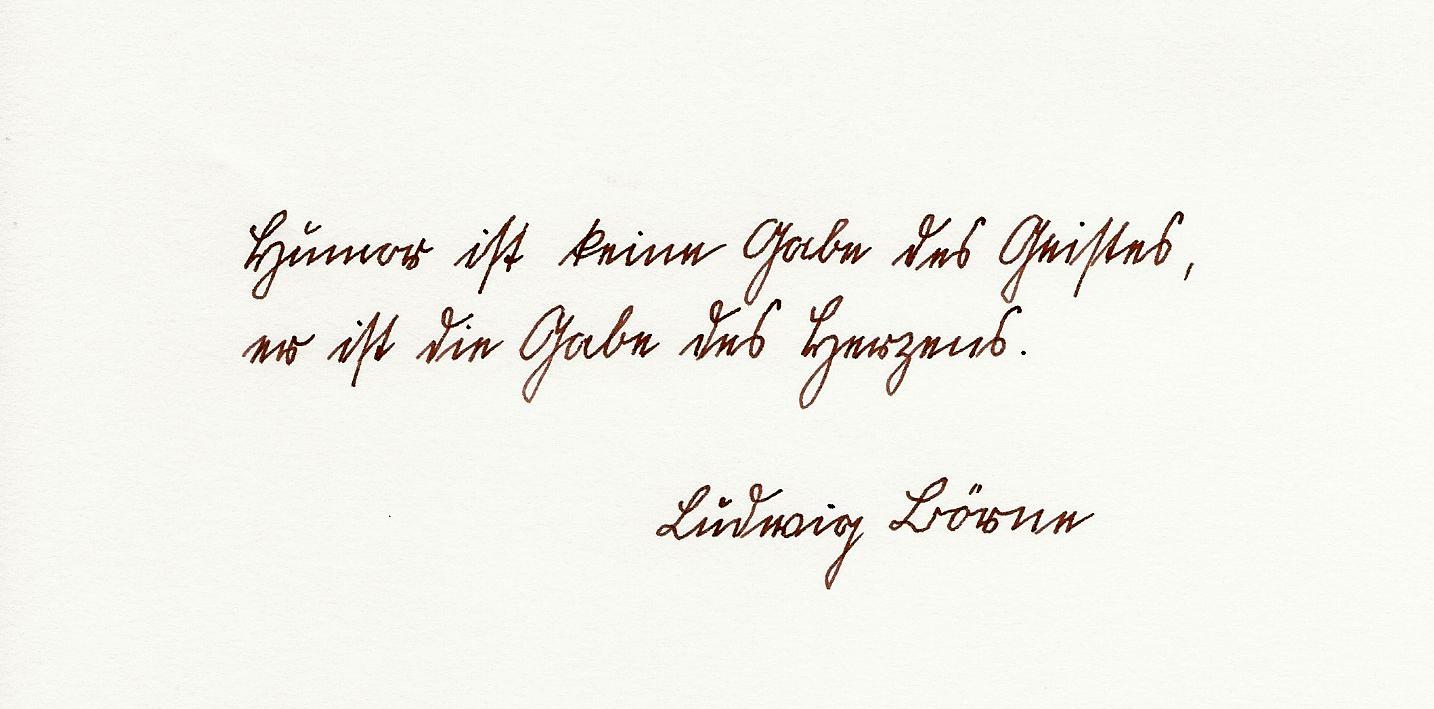 Humor ist keine Gabe des Geistes,
er ist die Gabe des Herzens.
Ludwig Börne